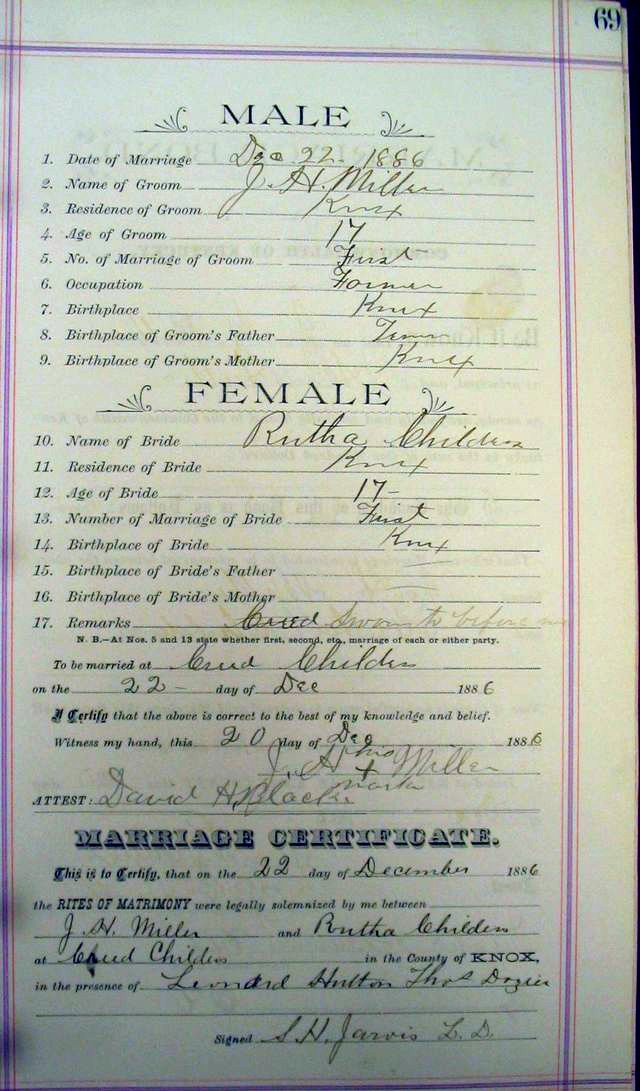 69
MALE
1. Date of Marriage Dec 22 - 1886
2. Name of Groom J. H. Miller
3. Residence of Groom Knox
4. Age of Groom 17
5. No. of Marriage of Groom First
6. Occupation Farmer
7. Birthplace Knox
8. Birthplace of Groom's Father Tenn
9. Birthplace of Groom's Mother Knox
FEMALE
10. Name of Bride Rutha Childers
11. Residence of Bride Knox
12. Age of Bride 17-
13. Number of Marriage of Bride First
14. Birthplace of Bride Knox
15. Birthplace of Bride's Father
16. Birthplace of Bride's Mother
17. Remarks Creed Sworn to before me
N. B.—At Nos. 5 and 13 state whether first, second, etc., marriage of each or either party.
To be married at Creed Childers
on the 22 - day of Dec 1886
I Certify that the above is correct to the best of my knowledge and belief.
Witness my hand, this 20 day of Dec 1886
J. H. his x mark Miller
ATTEST: David H. Black
MARRIAGE CERTIFICATE.
This is to Certify, that on the 22 day of December 1886
the RITES OF MATRIMONY were legally solemnized by me between
J. H. Miller and Rutha Childers
at Creed Childers in the County of KNOX,
in the presence of Leonard Hutton Thos Dozier
Signed S. H. Jarvis L. D.